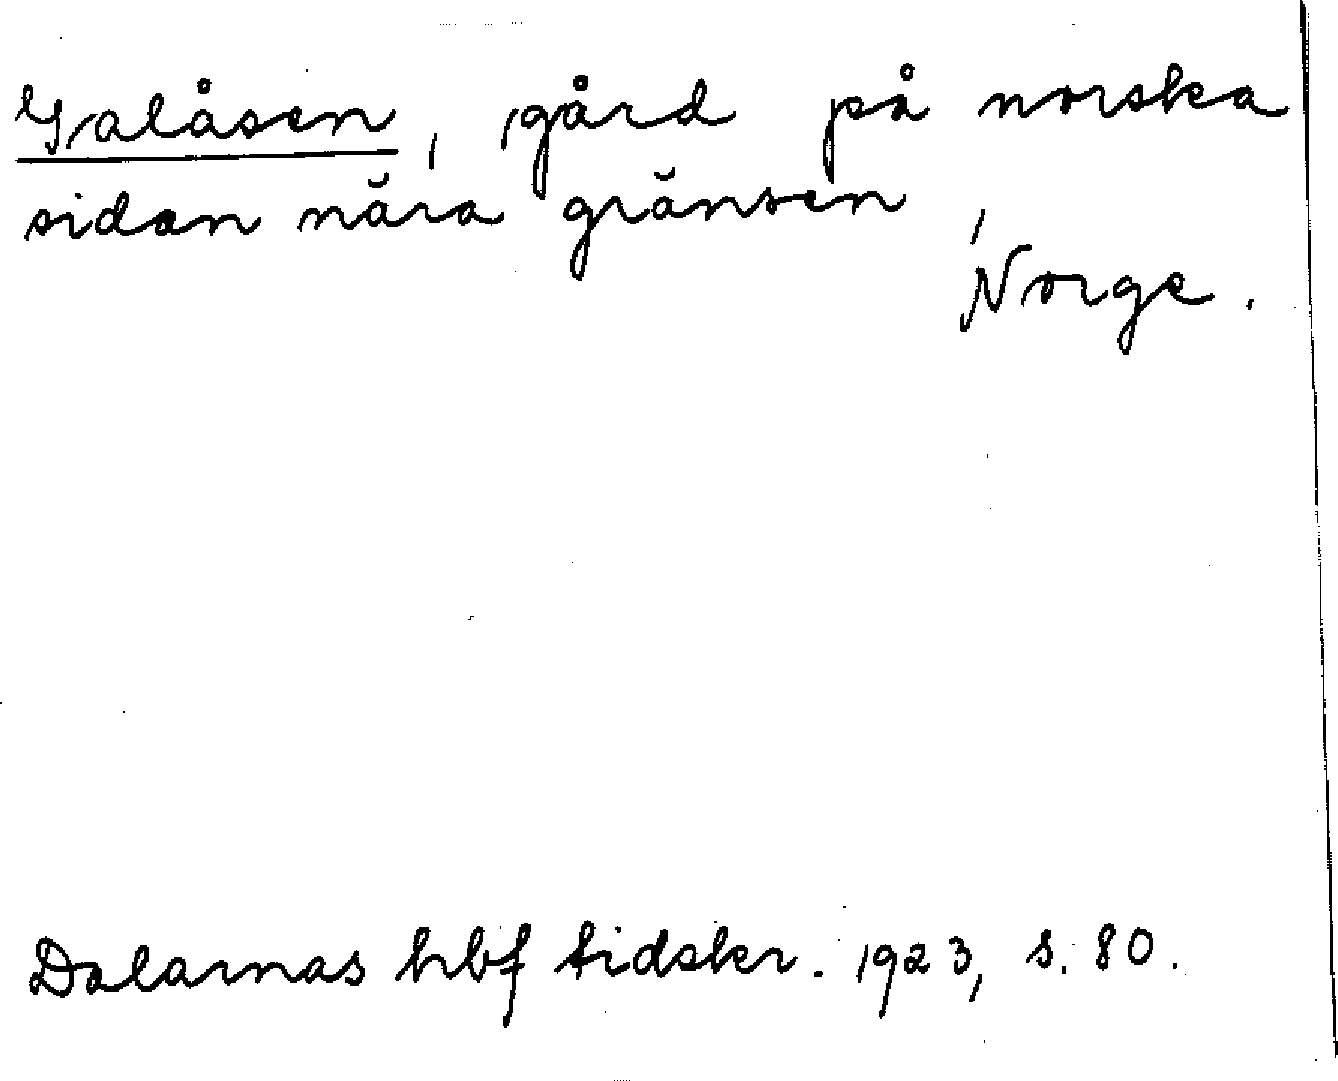 Galåsen, gård på norska
sidan nära gränsen,
Norge.
Dalarnas hbf tidskr. 1923, s. 80.